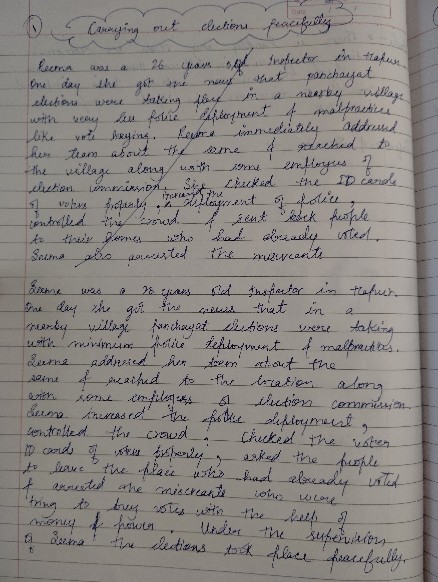 1
Carrying out elections peacefully
Reema was a 26 years old Inspector in Hapur.
One day she got the news that panchayat
elections were taking place in a nearby village
with very less police deployment & malpractices
like vote buying. Reema immediately addressed
her team about the same & reached to
the village along with some employees of
election commission. She checked the ID cards
of voters properly, increased the deployment of police,
controlled the crowd & sent back people
to their homes who had already voted.
Seema also arrested the miscreants
Seema was a 26 years old Inspector in Hapur.
One day she got the news that in a
nearby village panchayat elections were taking
with minimum police deployment & malpractices.
Seema addressed her team about the
same & reached to the location along
with some employees of election commission.
Seema increased the police deployment,
controlled the crowd, checked the voter
ID cards of voters properly, asked the people
to leave the place who had already voted
& arrested the miscreants who were
tring to buy votes with the help of
money & power. Under the supervision
of Seema the elections took place peacefully.